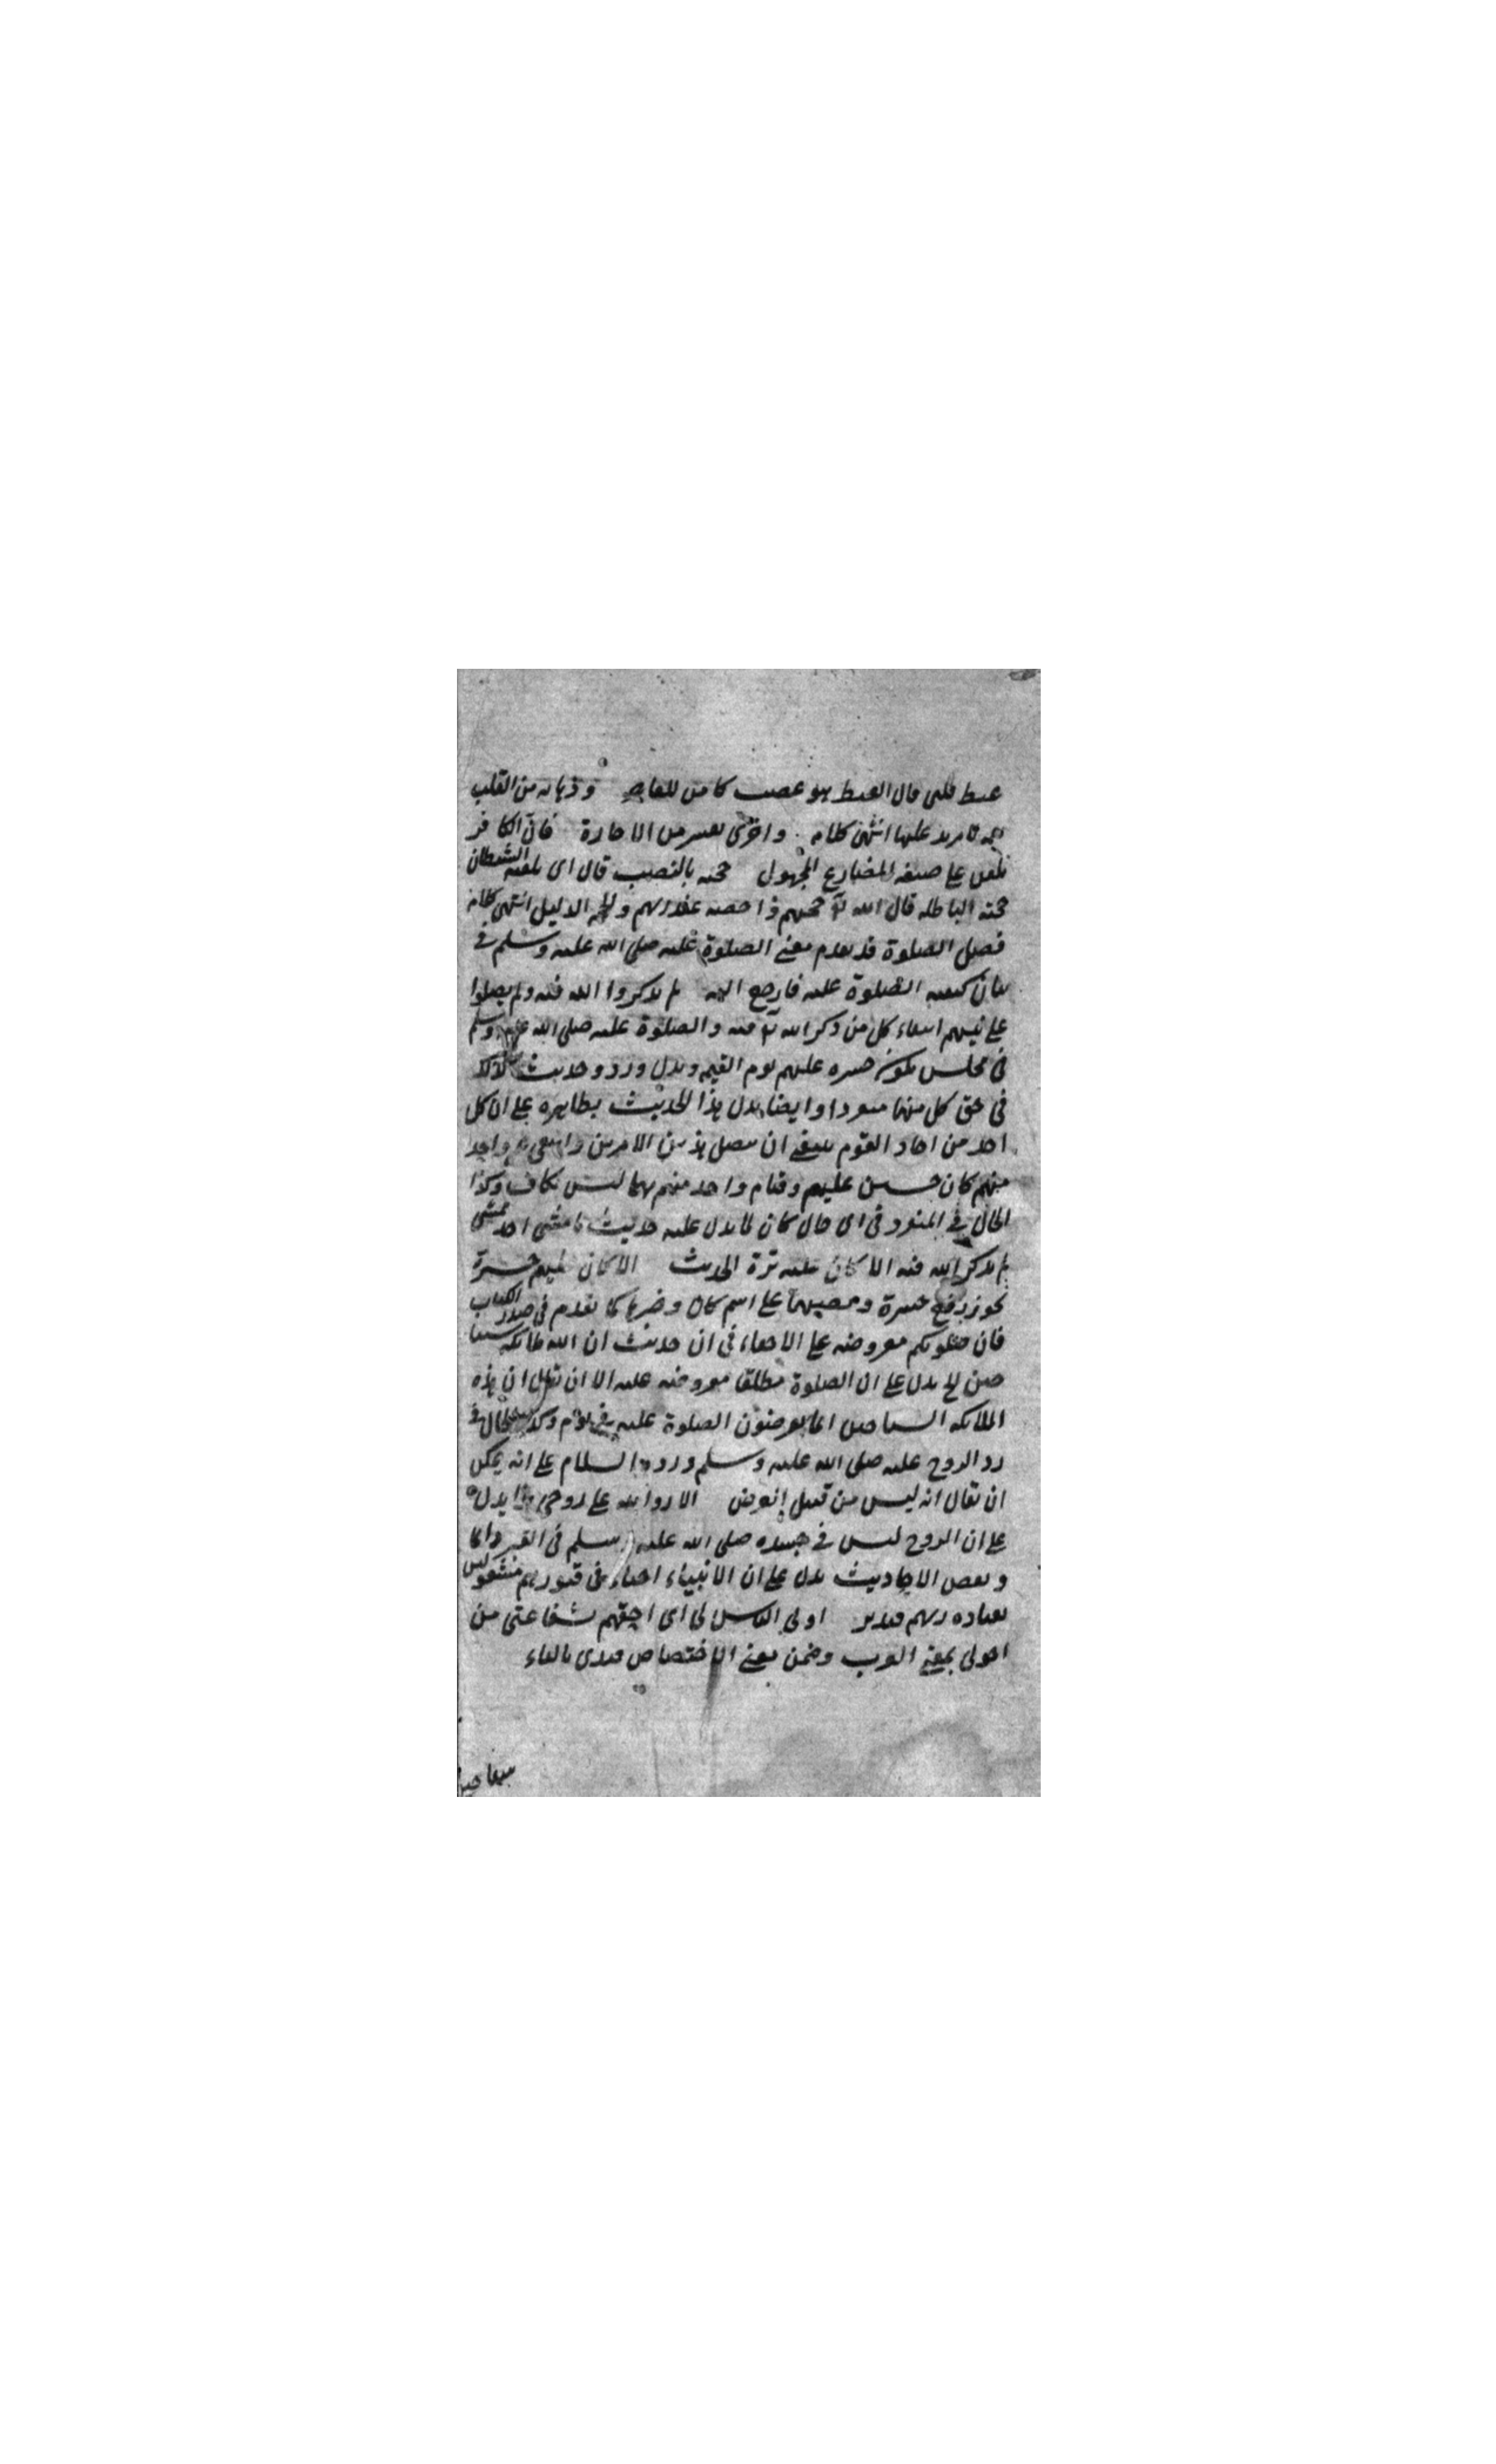 غيظ قلبى قال الغيظ هو غضب كامن للعاجز وذهابه من القلب
لا مزيد عليها انتهى كلامه واجرنى بفتح من الاجارة فان الكافر
يلقن على صيغة المضارع المجهول حجته بالنصب قال اى يلقنه الشيطان
حجته الباطلة قال الله تع حجتهم داحضة عند ربهم والحجة الدليل انتهى كلامه
فصل الصلوة قد تقدم معنى الصلوة عليه صلى الله عليه وسلم فى
بيان كيفية الصلوة عليه فارجع اليه لم يذكروا الله فيه ولم يصلوا
على نبيهم انتفاء كل من ذكر الله تع فيه والصلوة عليه صلى الله عليه وسلم
فى مجلس يكون حسرة عليهم يوم القيمة ويدل ورود حديث
فى حق كل منهما منفردا وايضا يدل هذا الحديث بظاهره على ان كل
احد من احاد القوم ينبغى ان يصل هذين الامرين واحد
منهم كان حسرة عليهم وقيام واحد منهم بهما ليس بكاف وكذا
الحال فى المنفرد فى اى حال كان لما يدل عليه حديث ما مشى احد ممشى
لم يذكر الله فيه الا كان عليه ترة الحديث الا كان عليهم حسرة
يجوز رفع حسرة ونصبها على اسم كان وخبرها كما تقدم فى صدر الكتاب
فان صلوتكم معروضة على الاحياء فى ان حديث ان الله ملائكة سياحين
يدل على ان الصلوة مطلقا معروضة عليه الا ان يقال ان هذه
الملائكة السياحين انما يعرضون الصلوة عليه فى يوم وكذا الحال فى
رد الروح عليه صلى الله عليه وسلم ورده السلام على انه يمكن
ان يقال انه ليس من قبيل العرض الا رد الله على روحى هذا يدل
على ان الروح ليس فى جسده صلى الله عليه وسلم فى القبر دائما
وبعض الاحاديث يدل على ان الانبياء احياء فى قبورهم مشغولين
بعبادة ربهم فتدبر اولى الناس بى اى احقهم بشفاعتى من
الولى بمعنى القرب وضمن معنى الاختصاص فعدى بالباء